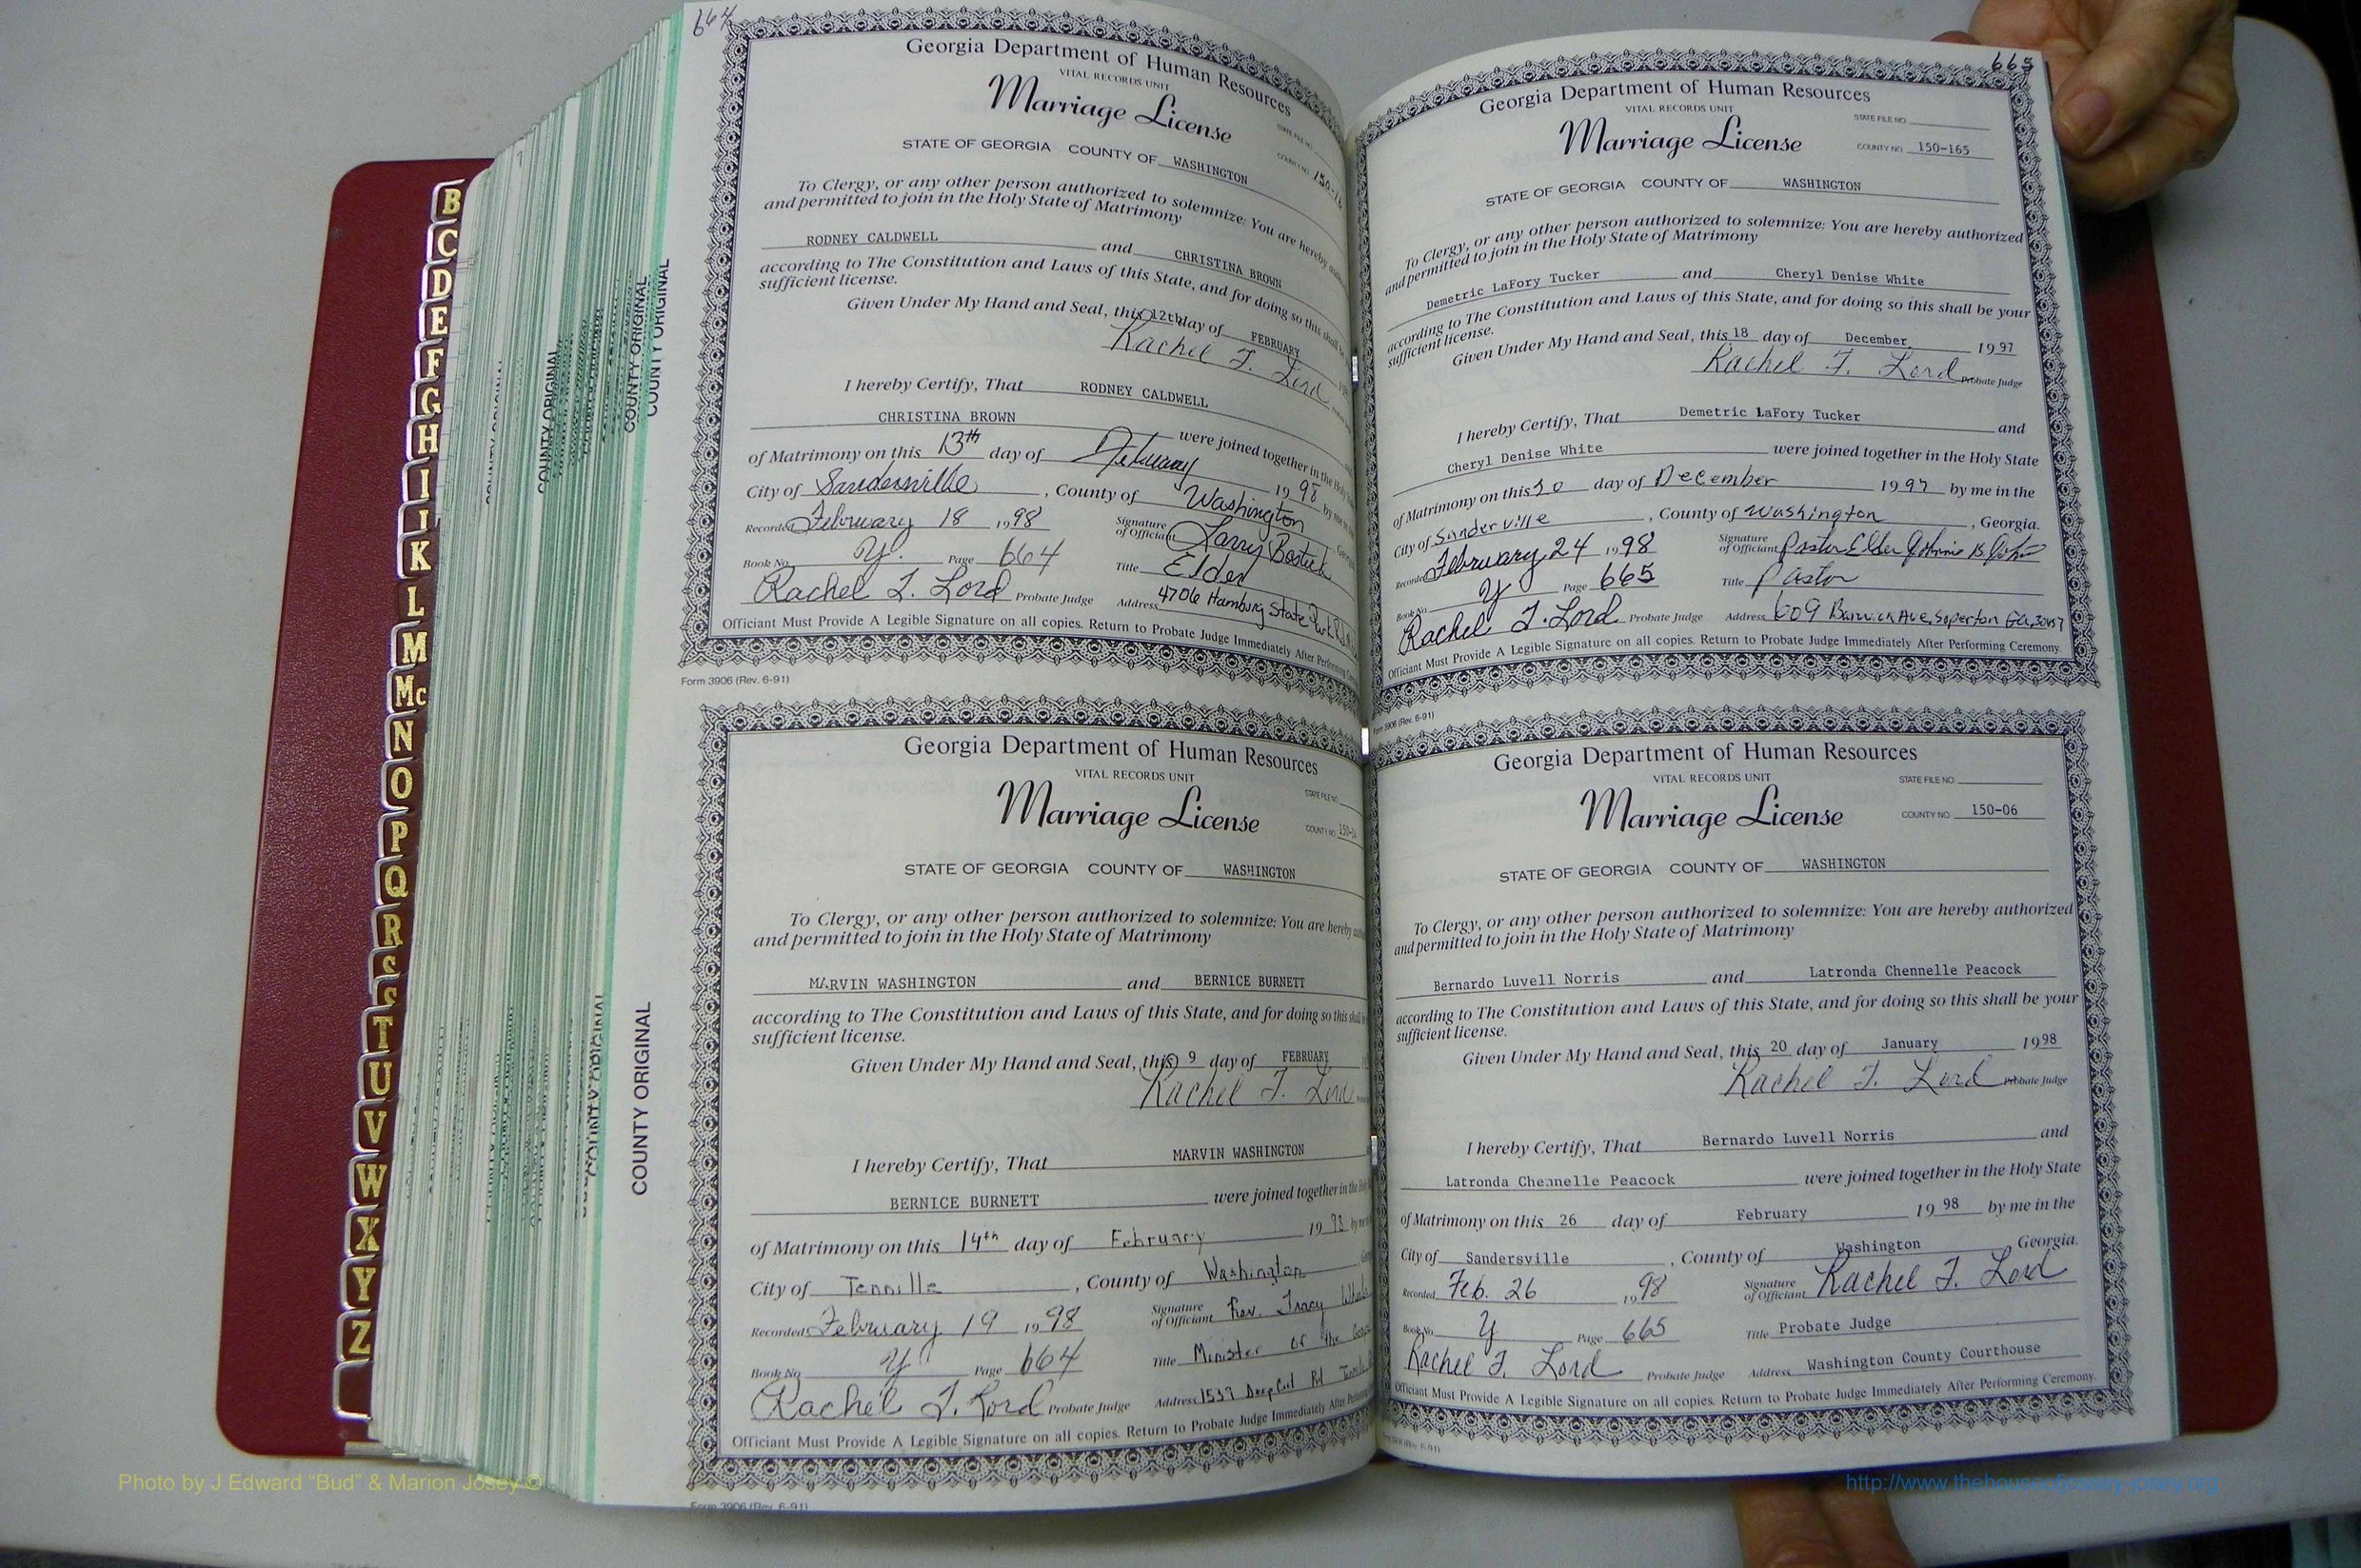 664
Georgia Department of Human Resources
VITAL RECORDS UNIT
Marriage License
STATE FILE NO.
COUNTY NO.
STATE OF GEORGIA COUNTY OF WASHINGTON
To Clergy, or any other person authorized to solemnize: You are hereby
and permitted to join in the Holy State of Matrimony
RODNEY CALDWELL and CHRISTINA BROWN
according to The Constitution and Laws of this State, and for doing so this shall
sufficient license.
Given Under My Hand and Seal, this 12th day of FEBRUARY
Rachel F. Lord
I hereby Certify, That RODNEY CALDWELL
CHRISTINA BROWN were joined together in the Holy
of Matrimony on this 13th day of February 19 98 by me
City of Sandersville , County of Washington
Recorded February 18 , 19 98 Signature of Officiant Larry Bostick
Book No. Y. Page 664 Title Elder
Rachel F. Lord Probate Judge Address 4706 Hamburg State Park Rd
Officiant Must Provide A Legible Signature on all copies. Return to Probate Judge Immediately After Performing
Form 3906 (Rev. 6-91)
Georgia Department of Human Resources
VITAL RECORDS UNIT
Marriage License
STATE FILE NO.
COUNTY NO.
STATE OF GEORGIA COUNTY OF WASHINGTON
To Clergy, or any other person authorized to solemnize: You are hereby
and permitted to join in the Holy State of Matrimony
MARVIN WASHINGTON and BERNICE BURNETT
according to The Constitution and Laws of this State, and for doing so this shall
sufficient license.
Given Under My Hand and Seal, this 9 day of FEBRUARY
Rachel F. Lord
I hereby Certify, That MARVIN WASHINGTON
BERNICE BURNETT were joined together in the
of Matrimony on this 14th day of February 19 98 by me
City of Tennille , County of Washington
Recorded February 19 19 98 Signature of Officiant Rev. Tracy
Book No. Y Page 664 Title Minister of the
Rachel F. Lord Probate Judge Address 1537 Rd
Officiant Must Provide A Legible Signature on all copies. Return to Probate Judge Immediately After
Form 3906 (Rev. 6-91)
665
Georgia Department of Human Resources
VITAL RECORDS UNIT
Marriage License
STATE FILE NO.
COUNTY NO. 150-165
STATE OF GEORGIA COUNTY OF WASHINGTON
To Clergy, or any other person authorized to solemnize: You are hereby authorized
and permitted to join in the Holy State of Matrimony
Demetric LaFory Tucker and Cheryl Denise White
according to The Constitution and Laws of this State, and for doing so this shall be your
sufficient license.
Given Under My Hand and Seal, this 18 day of December 19 97
Rachel F. Lord Probate Judge
I hereby Certify, That Demetric LaFory Tucker and
Cheryl Denise White were joined together in the Holy State
of Matrimony on this day of December 19 97 by me in the
City of Sanderville , County of Washington , Georgia.
Recorded February 24 19 98 Signature of Officiant Pastor Elder Johnie B
Book No. Y Page 665 Title Pastor
Rachel F. Lord Probate Judge Address 609 Ave, Soperton Ga, 30457
Officiant Must Provide A Legible Signature on all copies. Return to Probate Judge Immediately After Performing Ceremony.
Form 3906 (Rev. 6-91)
Georgia Department of Human Resources
VITAL RECORDS UNIT
Marriage License
STATE FILE NO.
COUNTY NO. 150-06
STATE OF GEORGIA COUNTY OF WASHINGTON
To Clergy, or any other person authorized to solemnize: You are hereby authorized
and permitted to join in the Holy State of Matrimony
Bernardo Luvell Norris and Latronda Chennelle Peacock
according to The Constitution and Laws of this State, and for doing so this shall be your
sufficient license.
Given Under My Hand and Seal, this 20 day of January 19 98
Rachel F. Lord Probate Judge
I hereby Certify, That Bernardo Luvell Norris and
Latronda Chennelle Peacock were joined together in the Holy State
of Matrimony on this 26 day of February 19 98 by me in the
City of Sandersville , County of Washington Georgia.
Recorded Feb. 26 19 98 Signature of Officiant Rachel F. Lord
Book No. Y Page 665 Title Probate Judge
Rachel F. Lord Probate Judge Address Washington County Courthouse
Officiant Must Provide A Legible Signature on all copies. Return to Probate Judge Immediately After Performing Ceremony.
B
C
D
E
F
G
H
I
J
K
L
M
Mc
N
O
P
Q
R
S
T
U
V
W
X
Y
Z
COUNTY ORIGINAL
COUNTY ORIGINAL
COUNTY ORIGINAL
COUNTY ORIGINAL
Photo by J Edward "Bud" & Marion Josey ©
http://www.thehouseofjossey-josey.org